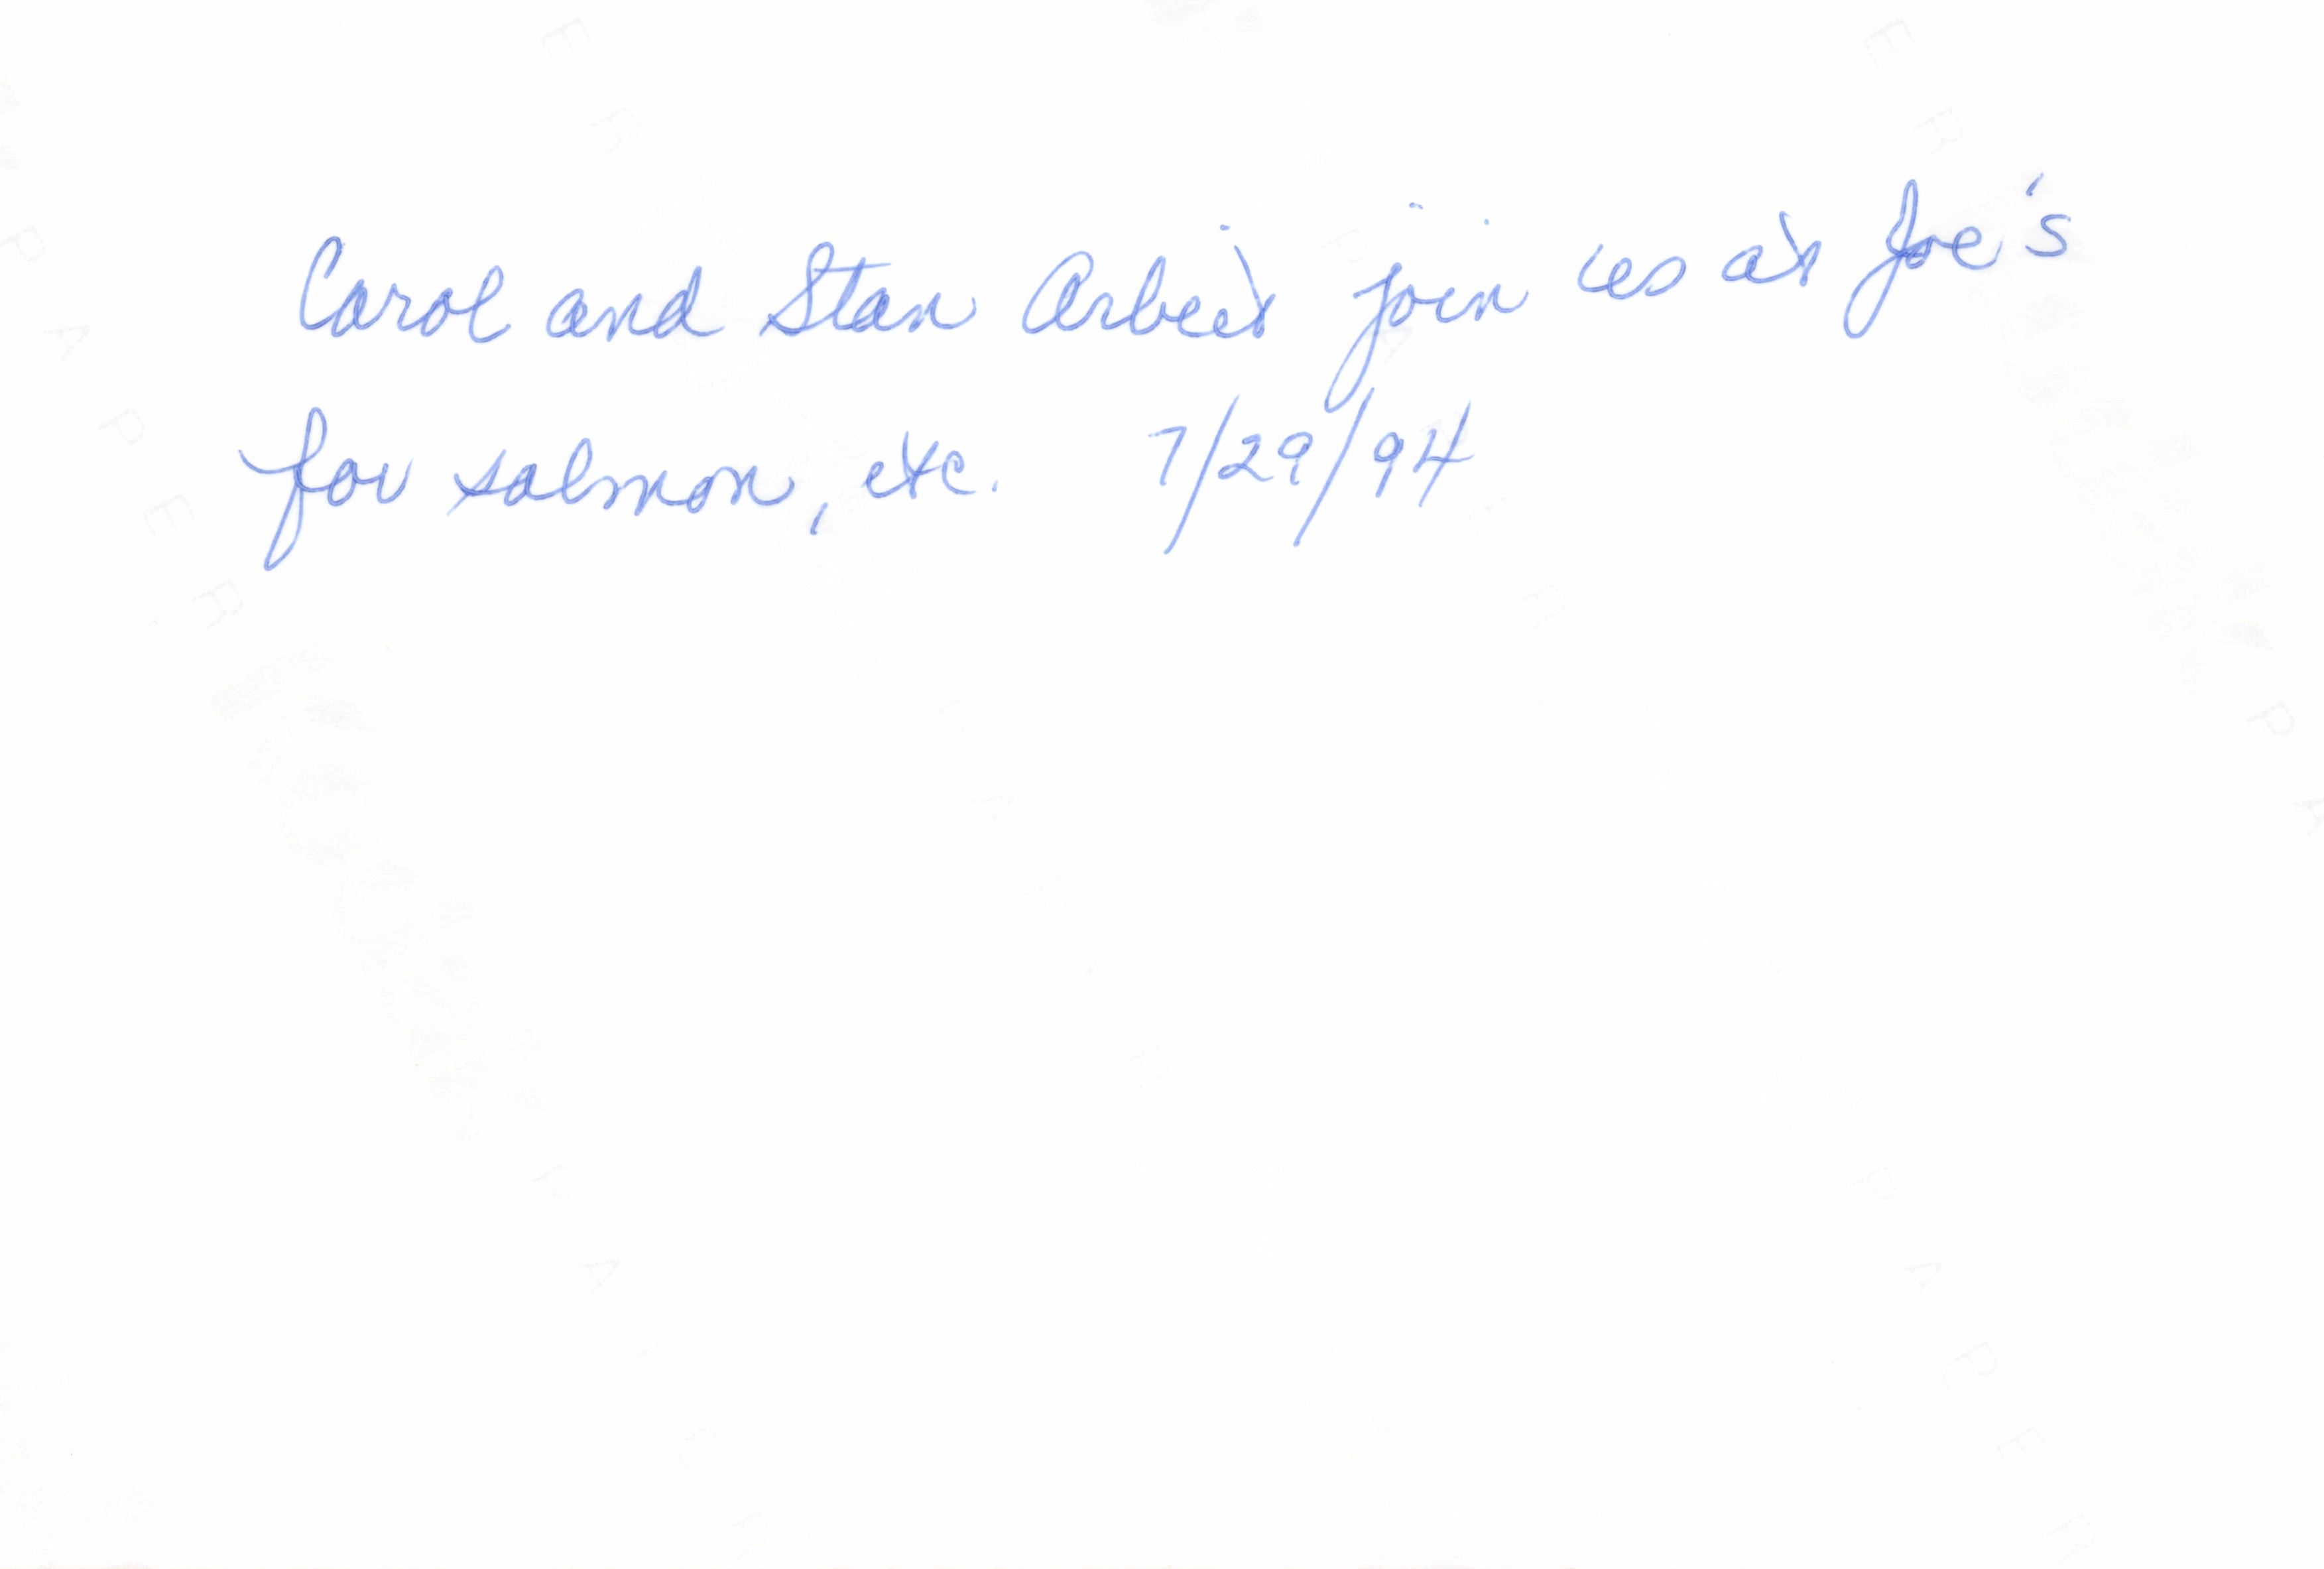 Carol and Stan Arbeit join us at Joe's
for salmon, etc. 7/29/94